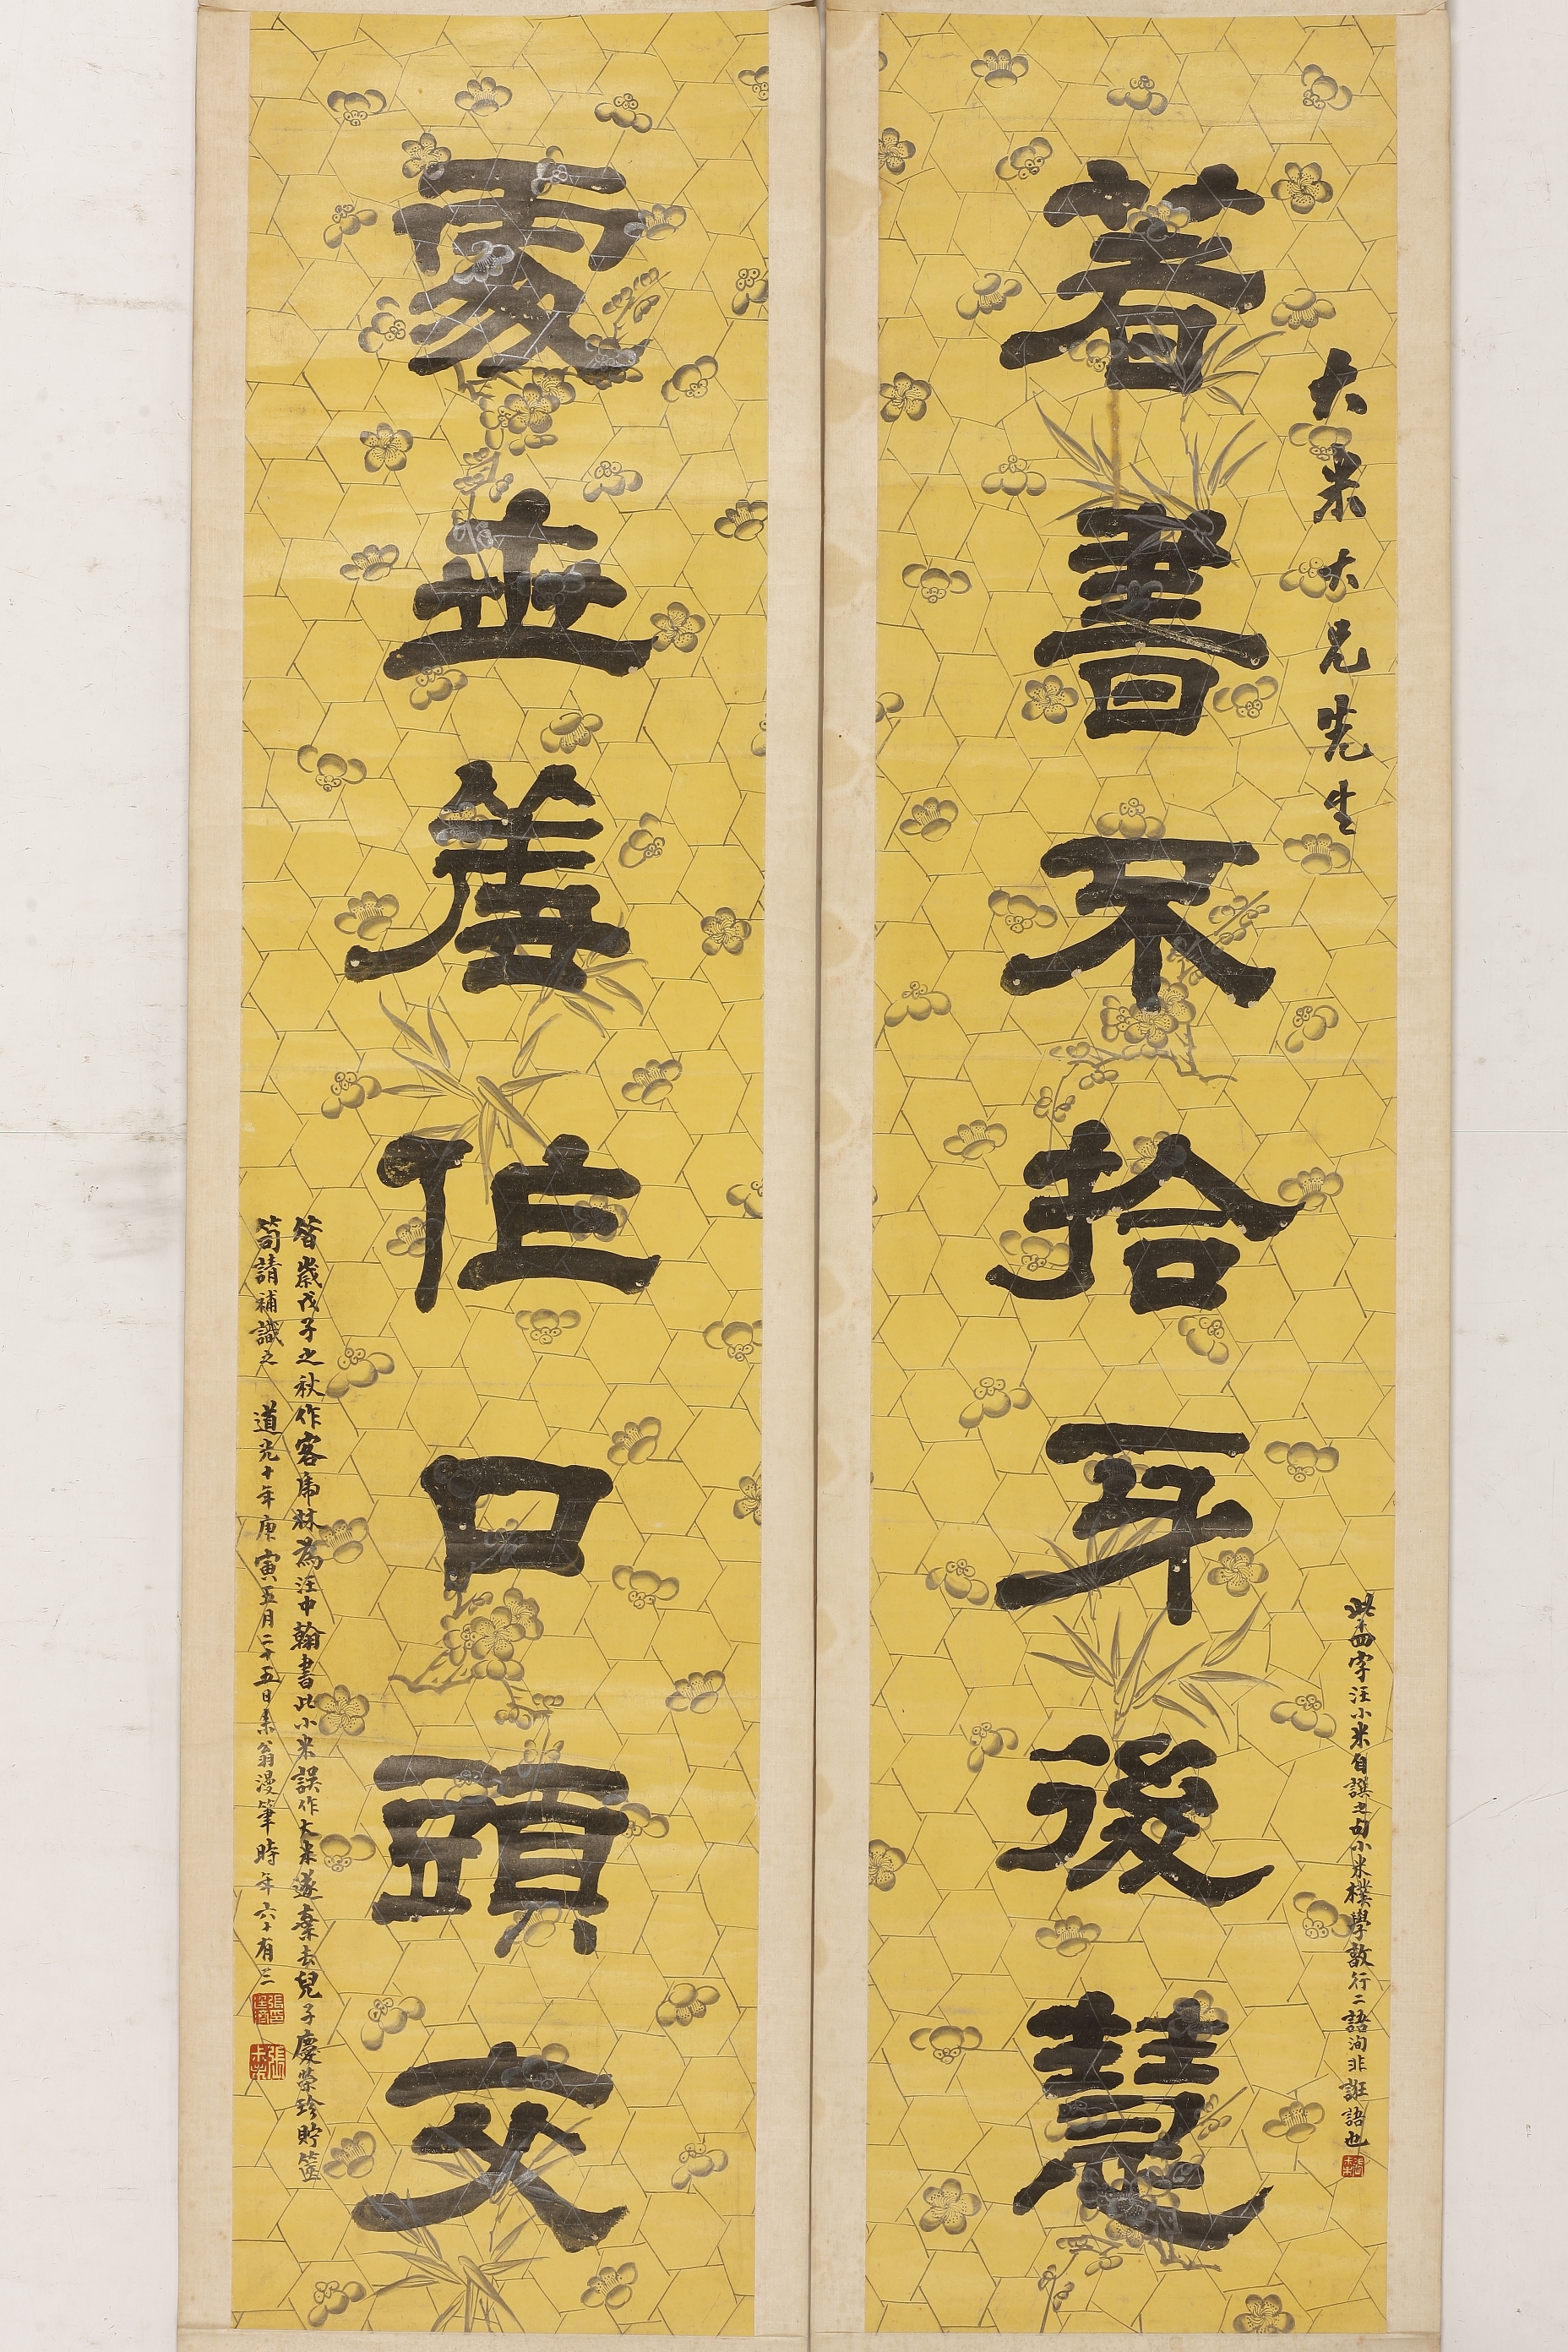 大米大兄先生
著書不拾牙後慧
此十四字汪小米自譔之句小米樸學敦行二語洵非誑語也
處世羞作口頭交
昔歲戊子之秋作客虎林為汪中翰書此小米誤作大米遂棄去兒子慶榮珍貯篋
笥請補識之 道光十年庚寅五月二十五日未翁漫筆時年六十有三